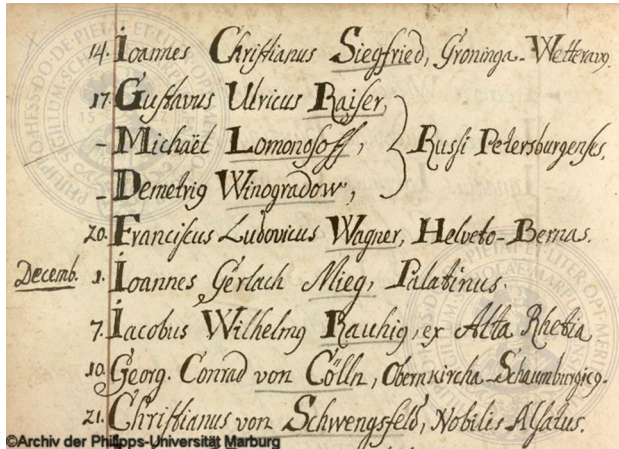 14. Ioannes Christianus Siegfried, Groninga-Wetterav9.
17. Gustavus Ulricus Raiser,
- Michaël Lomonosoff, } Russi Petersburgenses.
- Demetri9 Winogradow,
20. Franciscus Ludovicus Wagner, Helveto-Bernas.
Decemb. 1. Ioannes Gerlach Mieg, Palatinus.
7. Iacobus Wilhelm9 Rauhig, ex Alta Rhetia
10. Georg. Conrad von Cölln, Obernkircha-Schaumburgic9.
21. Christianus von Schwengsfeld, Nobilis Alsatus.
©Archiv der Philipps-Universität Marburg